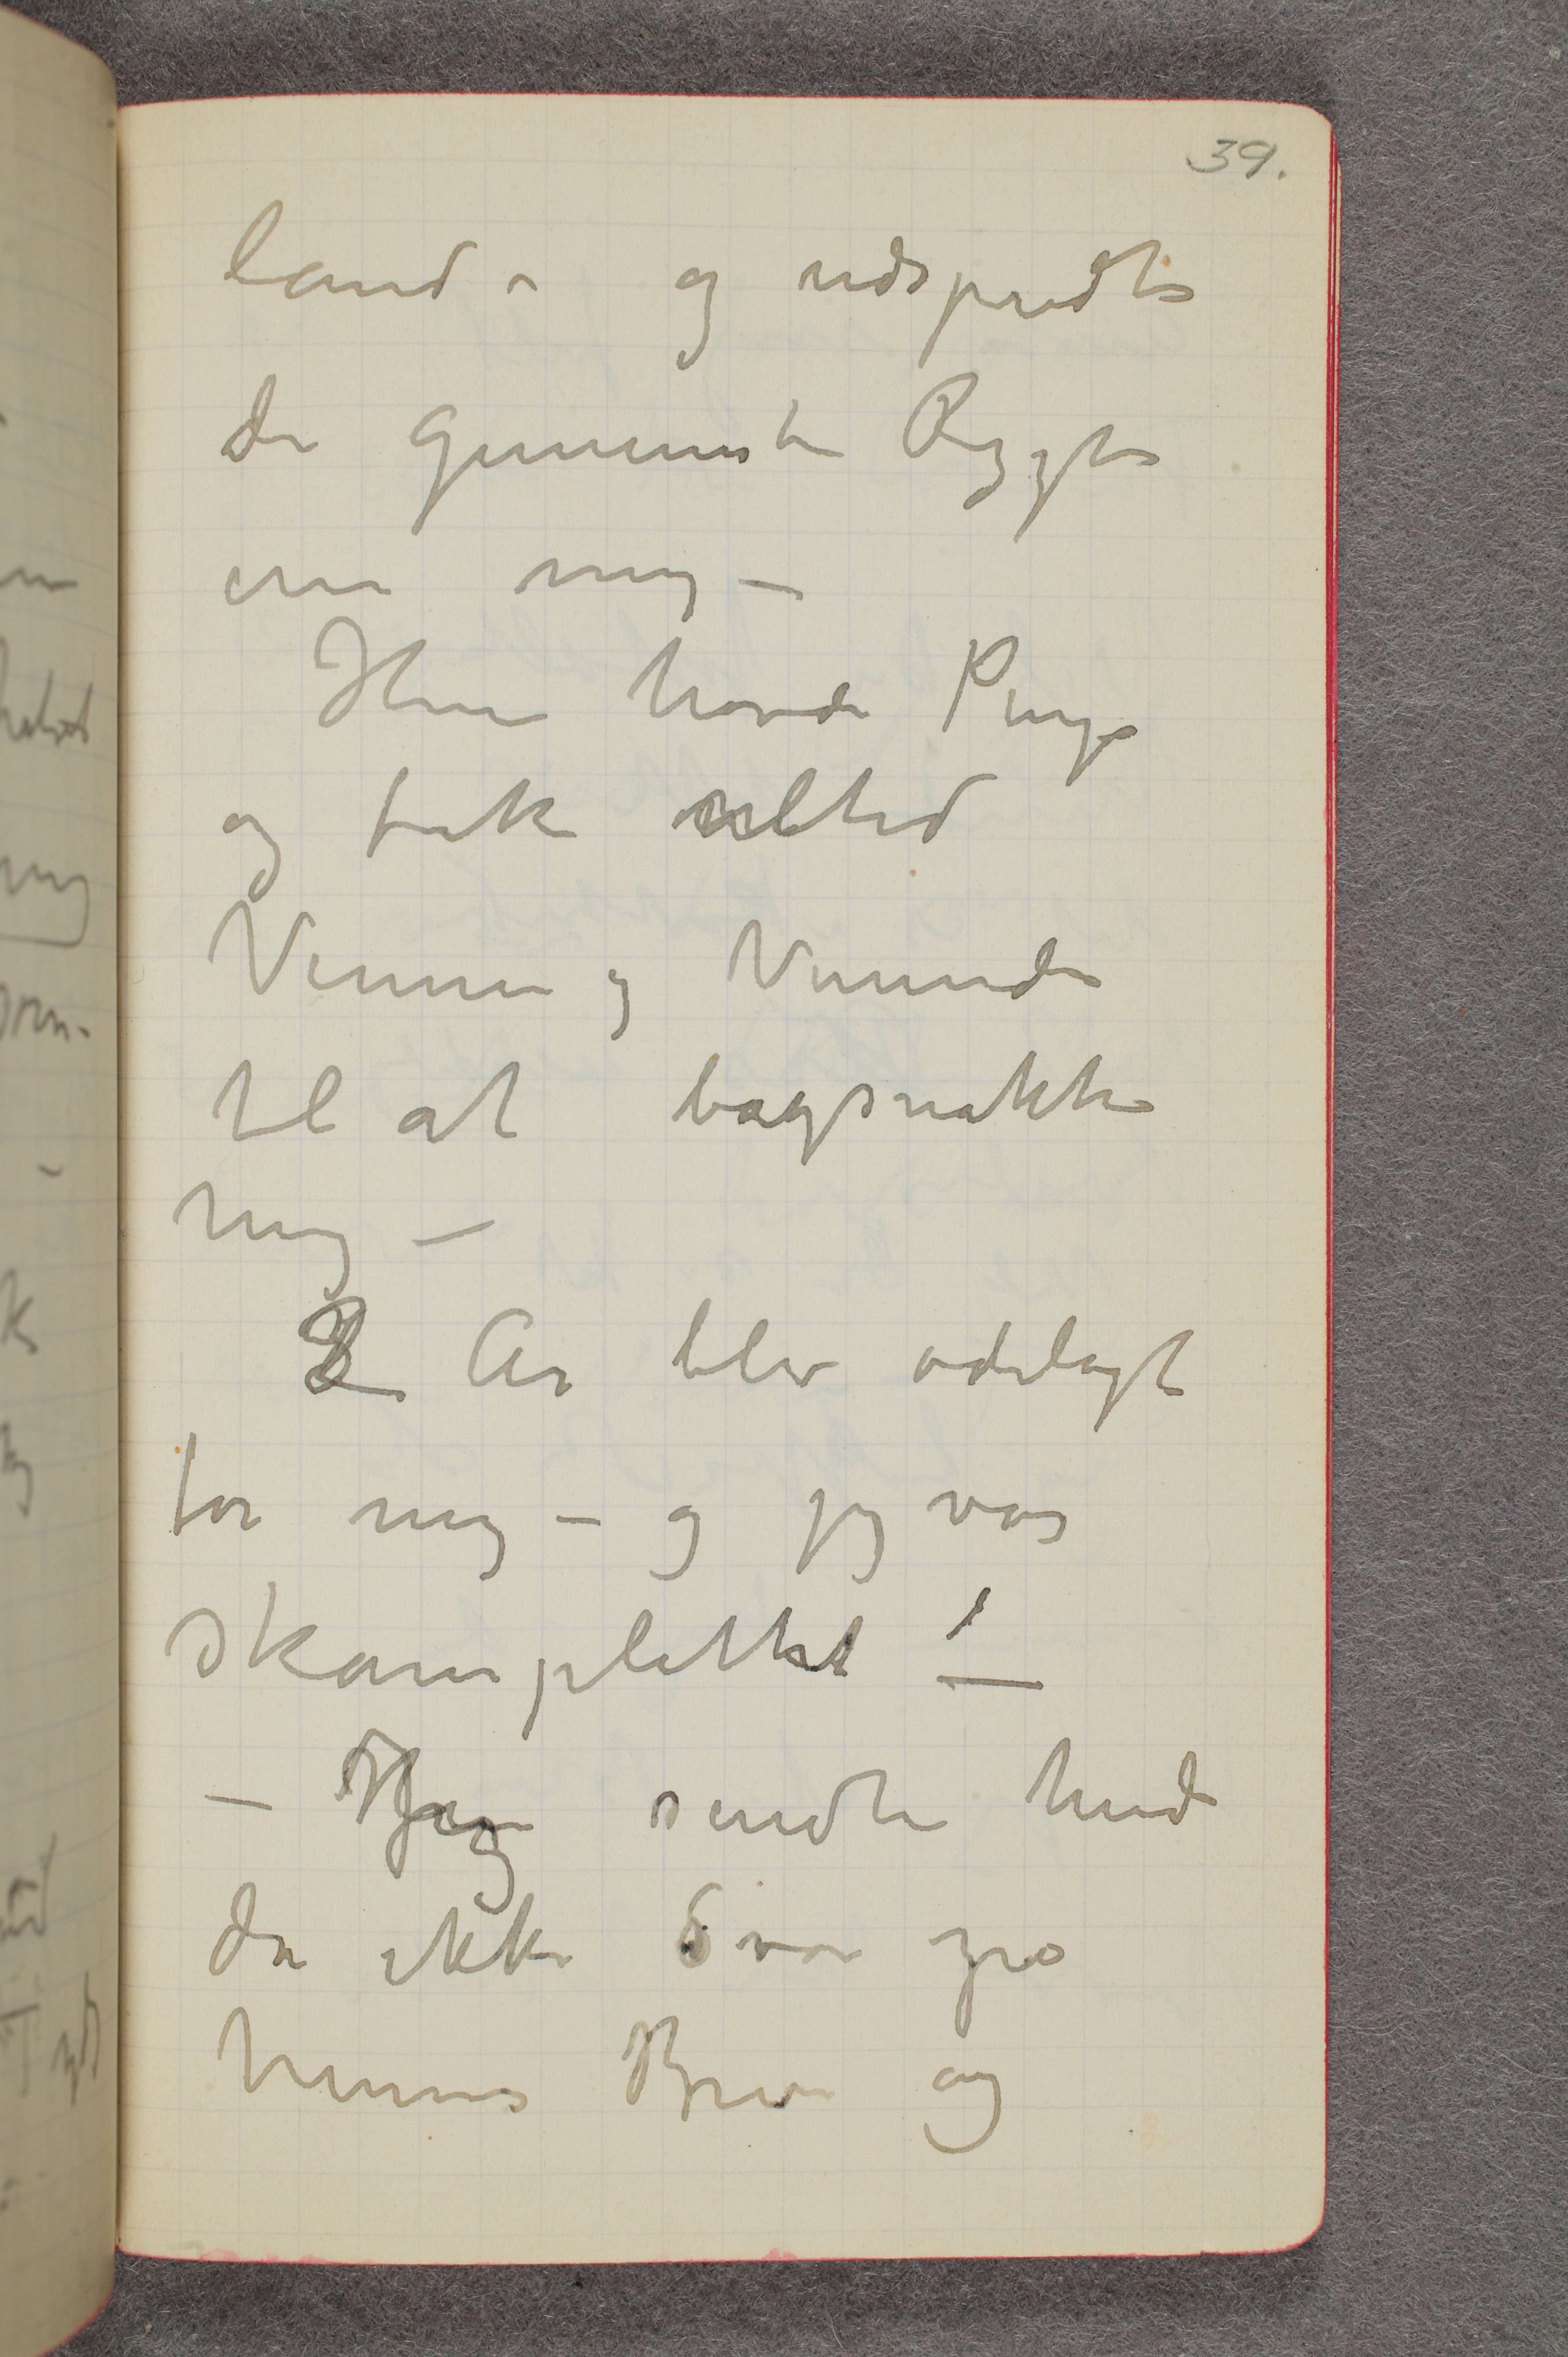 39.
land – og udspredte
de gemeneste Rygter
om mig –
Hun havde Penge
og fik altid
Venner og Veninder
til at bagsnakke
mig –
2 Ar blev ødelagt
for mig – og jeg var
skamplettet! –
– Jeg sendte hende
da ikke Svar på
hennes Brev og